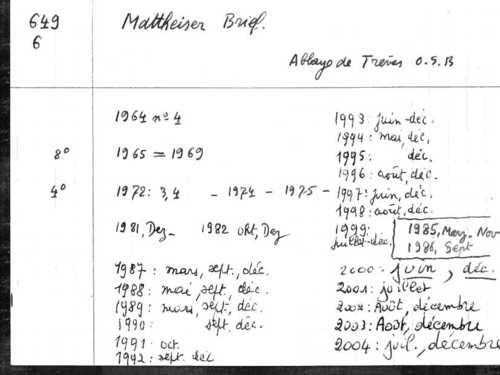 649
6
Mattheiser Brief.
Abbaye de Trèves O.S.B
1964 nº 4
8º 1965 = 1969
4º 1972: 3,4 - 1974 - 1975 -
1981, Dez - 1982 Okt, Dez
1987: mars, sept., déc.
1988: mai, sept. déc.
1989: mars, sept. déc.
1990: sept. déc.
1991: oct.
1992: sept. déc
1993: juin-déc.
1994: mai, déc.
1995: déc.
1996: août, déc.
1997: juin, déc.
1998: août, déc.
1999:
juillet-déc.
1985, März - Nov
1986, Sept
2000: juin, déc.
2001: juillet
2002: Août, décembre
2003: Août, décembre
2004: juil., décembre